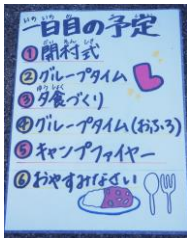 一日目の予定
① 開村式
② グループタイム
③ 夕食づくり
④ グループタイム(おふろ)
⑤ キャンプファイヤー
⑥ おやすみなさい